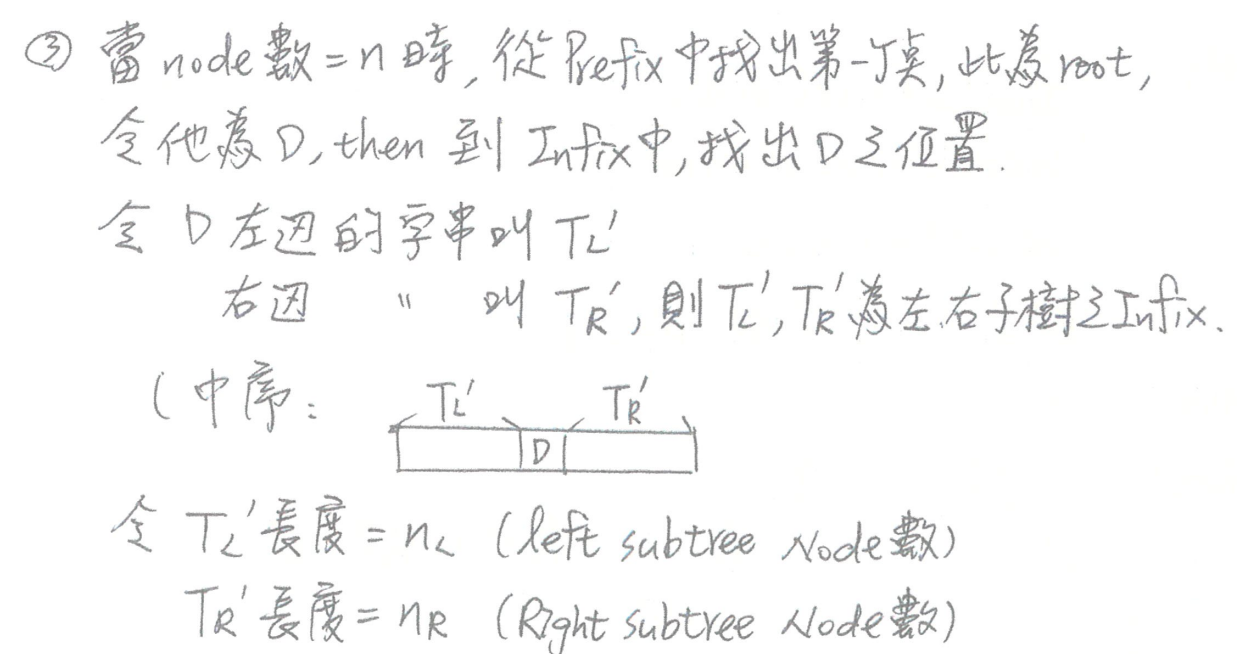 ③ 當node數=n時,從Prefix中找出第一頂點,此為root,
令他為D,then 到 Infix中,找出D之位置.
令 D左边的字串叫 TL'
右边 〃 叫 TR',則TL',TR'為左、右子樹之Infix.
(中序:
TL' TR'
D
令 TL'長度=nL (left subtree Node數)
TR'長度=nR (Right subtree Node數)